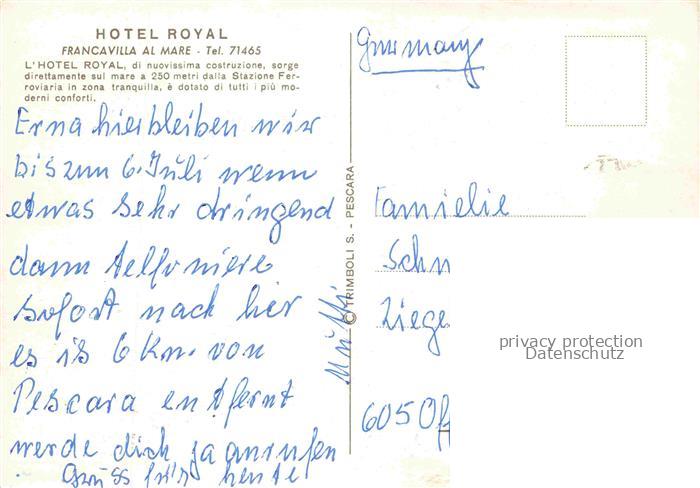 HOTEL ROYAL
FRANCAVILLA AL MARE - Tel. 71465
L'HOTEL ROYAL, di nuovissima costruzione, sorge
direttamente sul mare a 250 metri dalla Stazione Fer-
roviaria in zona tranquilla, è dotato di tutti i più mo-
derni conforti.
Erna hier bleiben wir
bis zum 6. Juli wenn
etwas sehr dringend
dann telfoniere
sofort nach hier
es is 6 Km. von
Pescara entfernt
werde dich ja anrufen
Gruss für heute
Mutti
© TRIMBOLI S. - PESCARA
Gurmany
Familie
Schn
Ziege
605 Off
privacy protection
Datenschutz